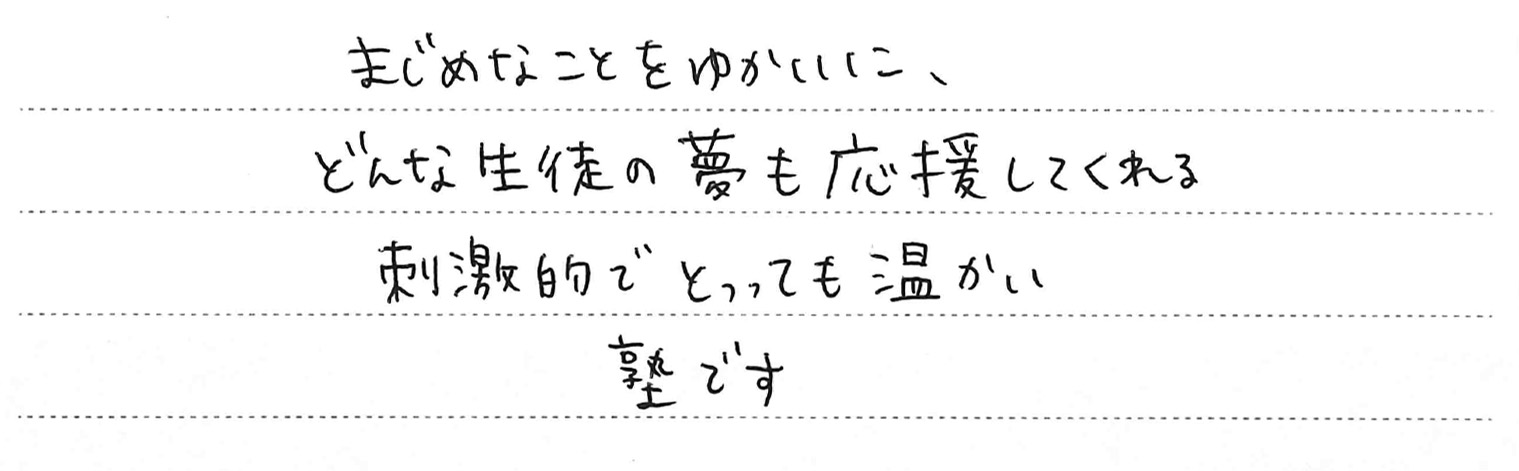 まじめなことをゆかいに、
どんな生徒の夢も応援してくれる
刺激的でとっっても温かい
塾です